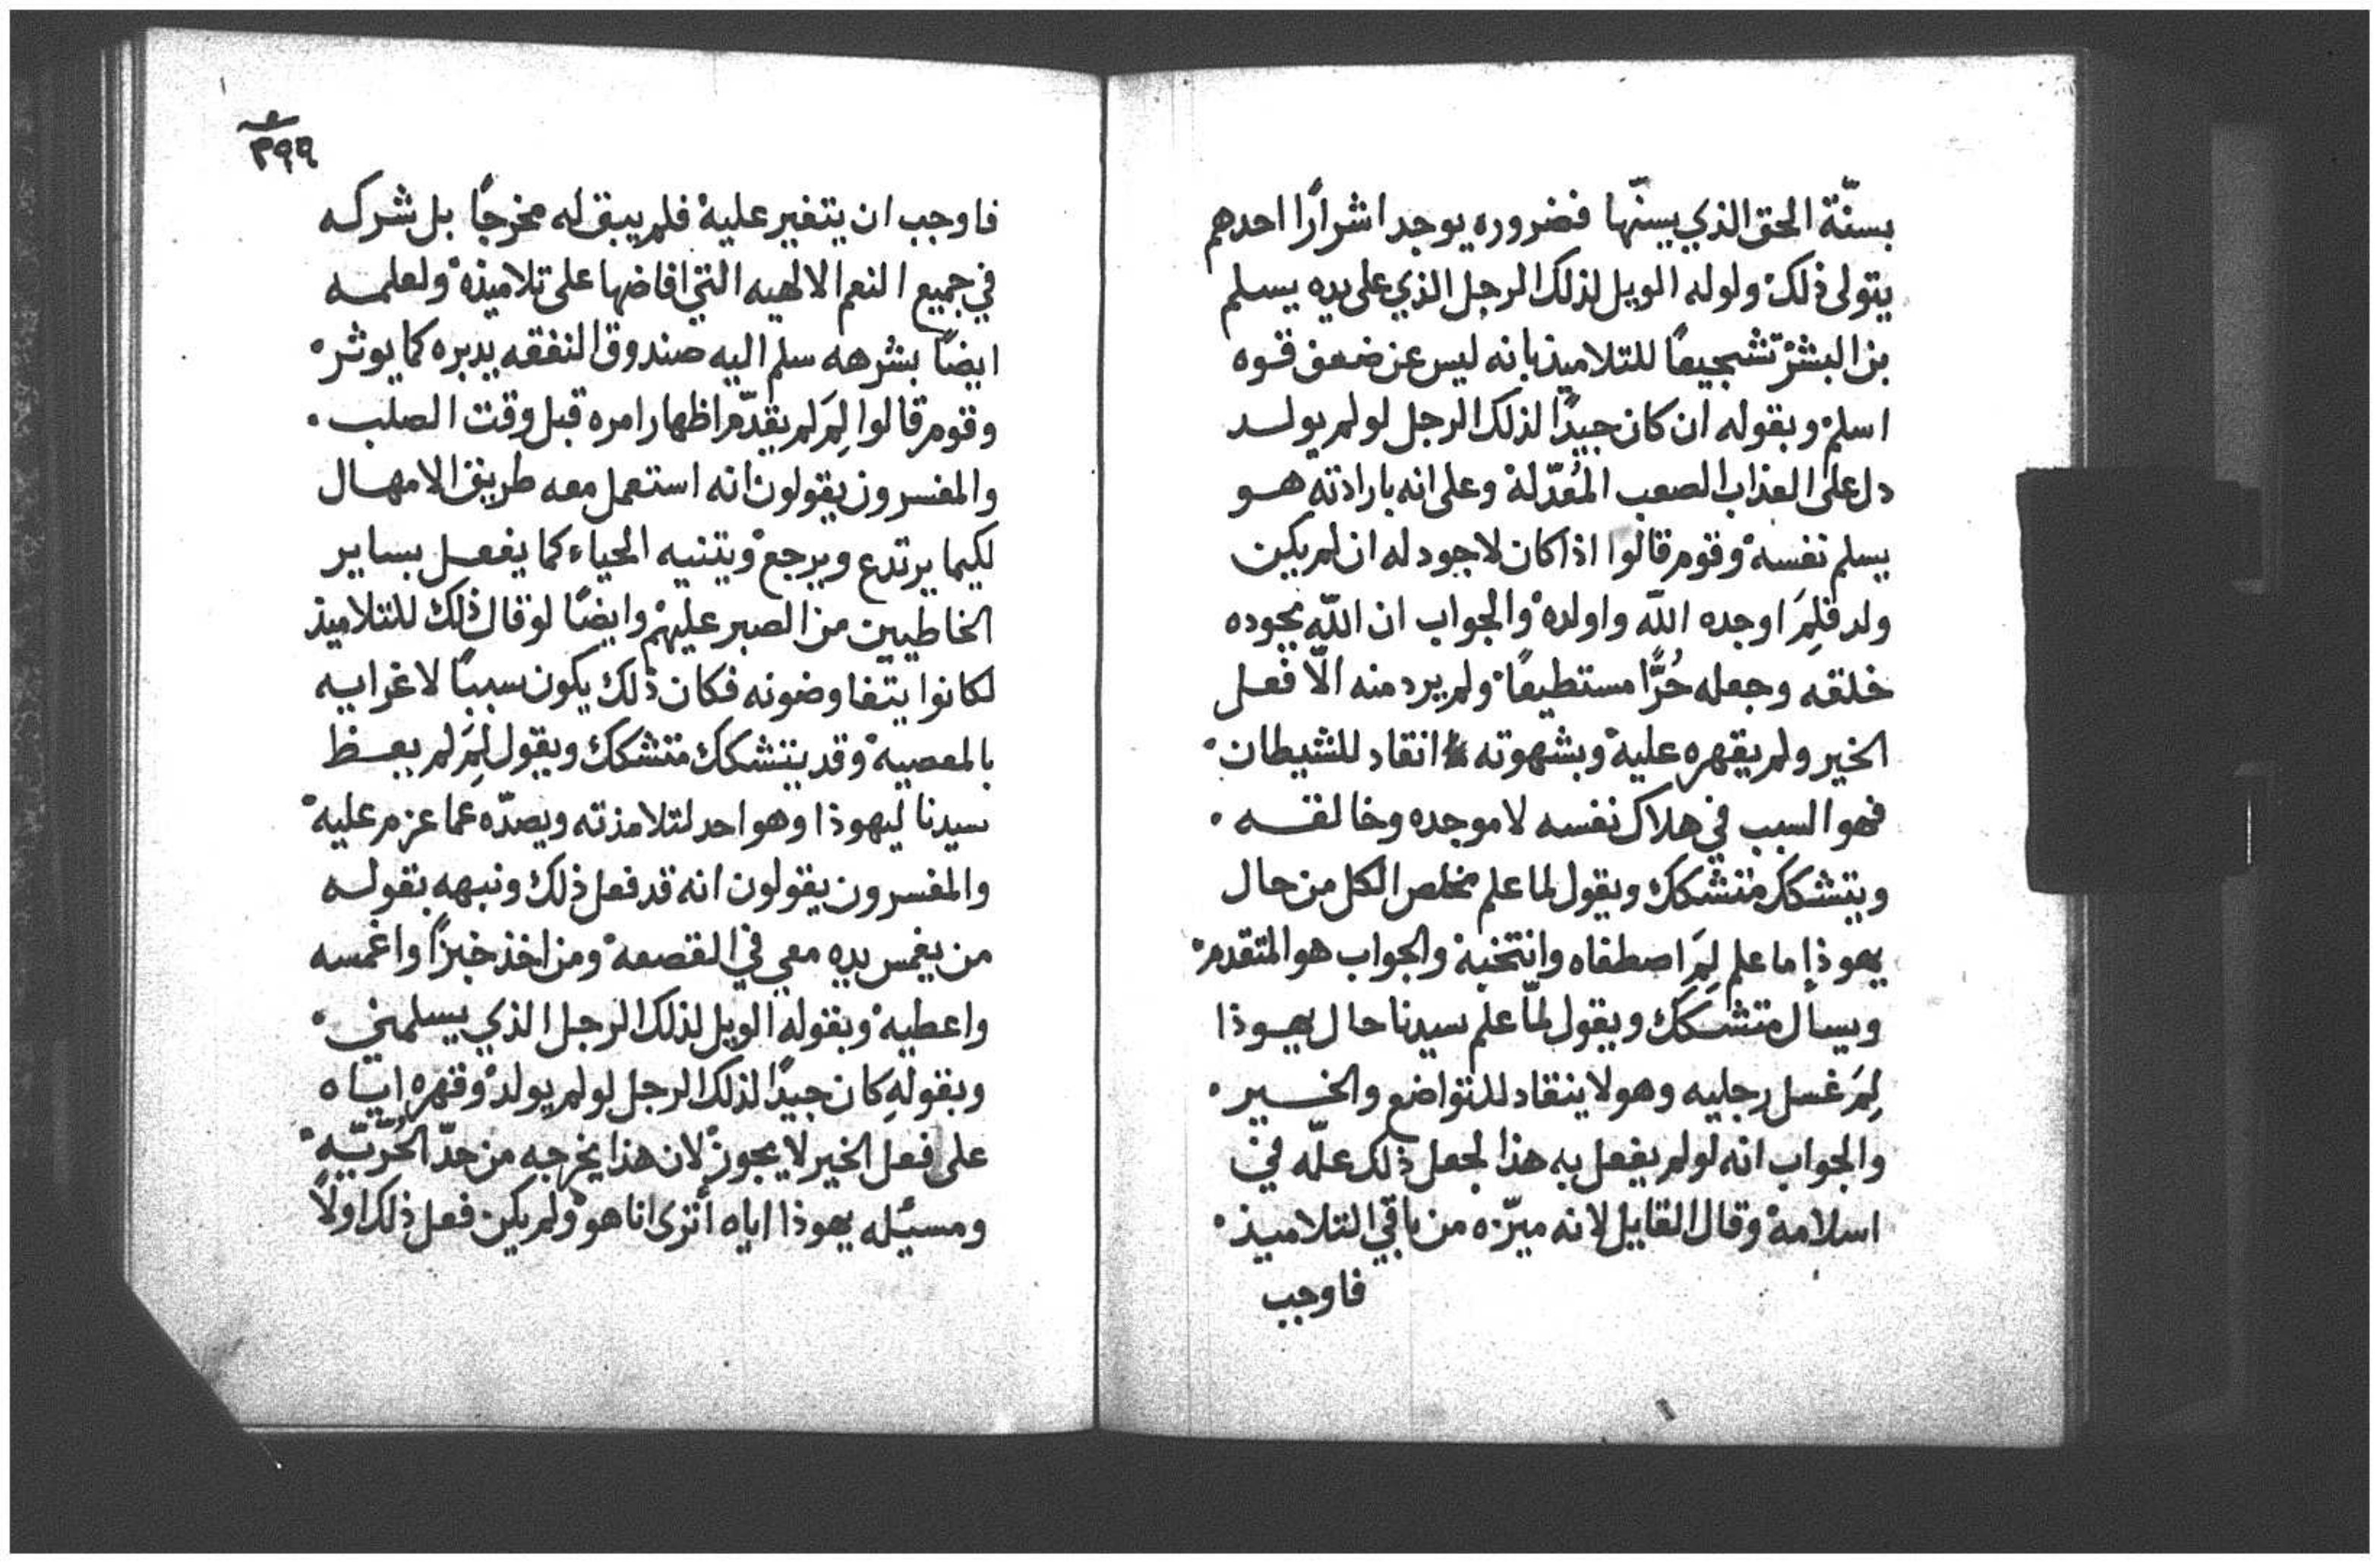 بسنّة الحق الذي يسنّها فضروره يوجد اشرارًا احدهم
يتولى ذلك ولوله الويل لذلك الرجل الذي على يده يسلم
بن البشر تشجيعًا للتلاميذ بانه ليس عن ضعف قوه
اسلم وبقوله ان كان جيدًا لذلك الرجل لو لم يولد
دل على العذاب الصعب المُعَدّ له وعلى انه بارادته هو
يسلم نفسه وقوم قالوا اذا كان لا جود له ان لم يكن
ولد فلِمَ اوجده اللّه واولده والجواب ان اللّه بجوده
خلقه وجعله حُرًّا مستطيعًا ولم يرد منه الّا فعل
الخير ولم يقهره عليه وبشهوته انقاد للشيطان
فهو السبب في هلاك نفسه لا موجده وخالقه
ويتشكك متشكك ويقول لما علم مخلص الكل من حال
يهوذا ما علم لِمَ اصطفاه وانتخبه والجواب هو المتقدم
ويسال متشكك ويقول لمّا علم سيدنا حال يهوذا
لِمَ غسل رجليه وهو لا ينقاد للتواضع والخير
والجواب انه لو لم يفعل به هذا لجعل ذلك علّه في
اسلامه وقال القايل لانه ميّزه من باقي التلاميذ
فاوجب
٣٩٩
فاوجب ان يتغير عليه فلم يبق له مخرجًا بل شركه
في جميع النعم الالهيه التي افاضها على تلاميذه ولعلمه
ايضًا بشرهه سلم اليه صندوق النفقه يدبره كما يوثر
وقوم قالوا لِمَ لم يقدّم اظهار امره قبل وقت الصلب
والمفسرون يقولون انه استعمل معه طريق الامهال
لكيما يرتدع ويرجع ويثنيه الحياء كما يفعل بساير
الخاطيين من الصبر عليهم وايضًا لو قال ذلك للتلاميذ
لكانوا يتفاوضونه فكان ذلك يكون سببًا لاغرايه
بالمعصيه وقد يتشكك متشكك ويقول لِمَ لم يعظ
سيدنا ليهوذا وهو احد لتلامذته ويصدّه عما عزم عليه
والمفسرون يقولون انه قد فعل ذلك ونبهه بقوله
من يغمس يده معي في القصعه ومن اخذ خبزًا واغمسه
واعطيه وبقوله الويل لذلك الرجل الذي يسلمني
وبقوله كان جيدًا لذلك الرجل لو لم يولد وقهره اياه
على فعل الخير لا يجوز لان هذا يخرجه من حدّ الحُرّيّه
ومسئله يهوذا اياه أترى انا هو ولم يكن فعل ذلك اولًا